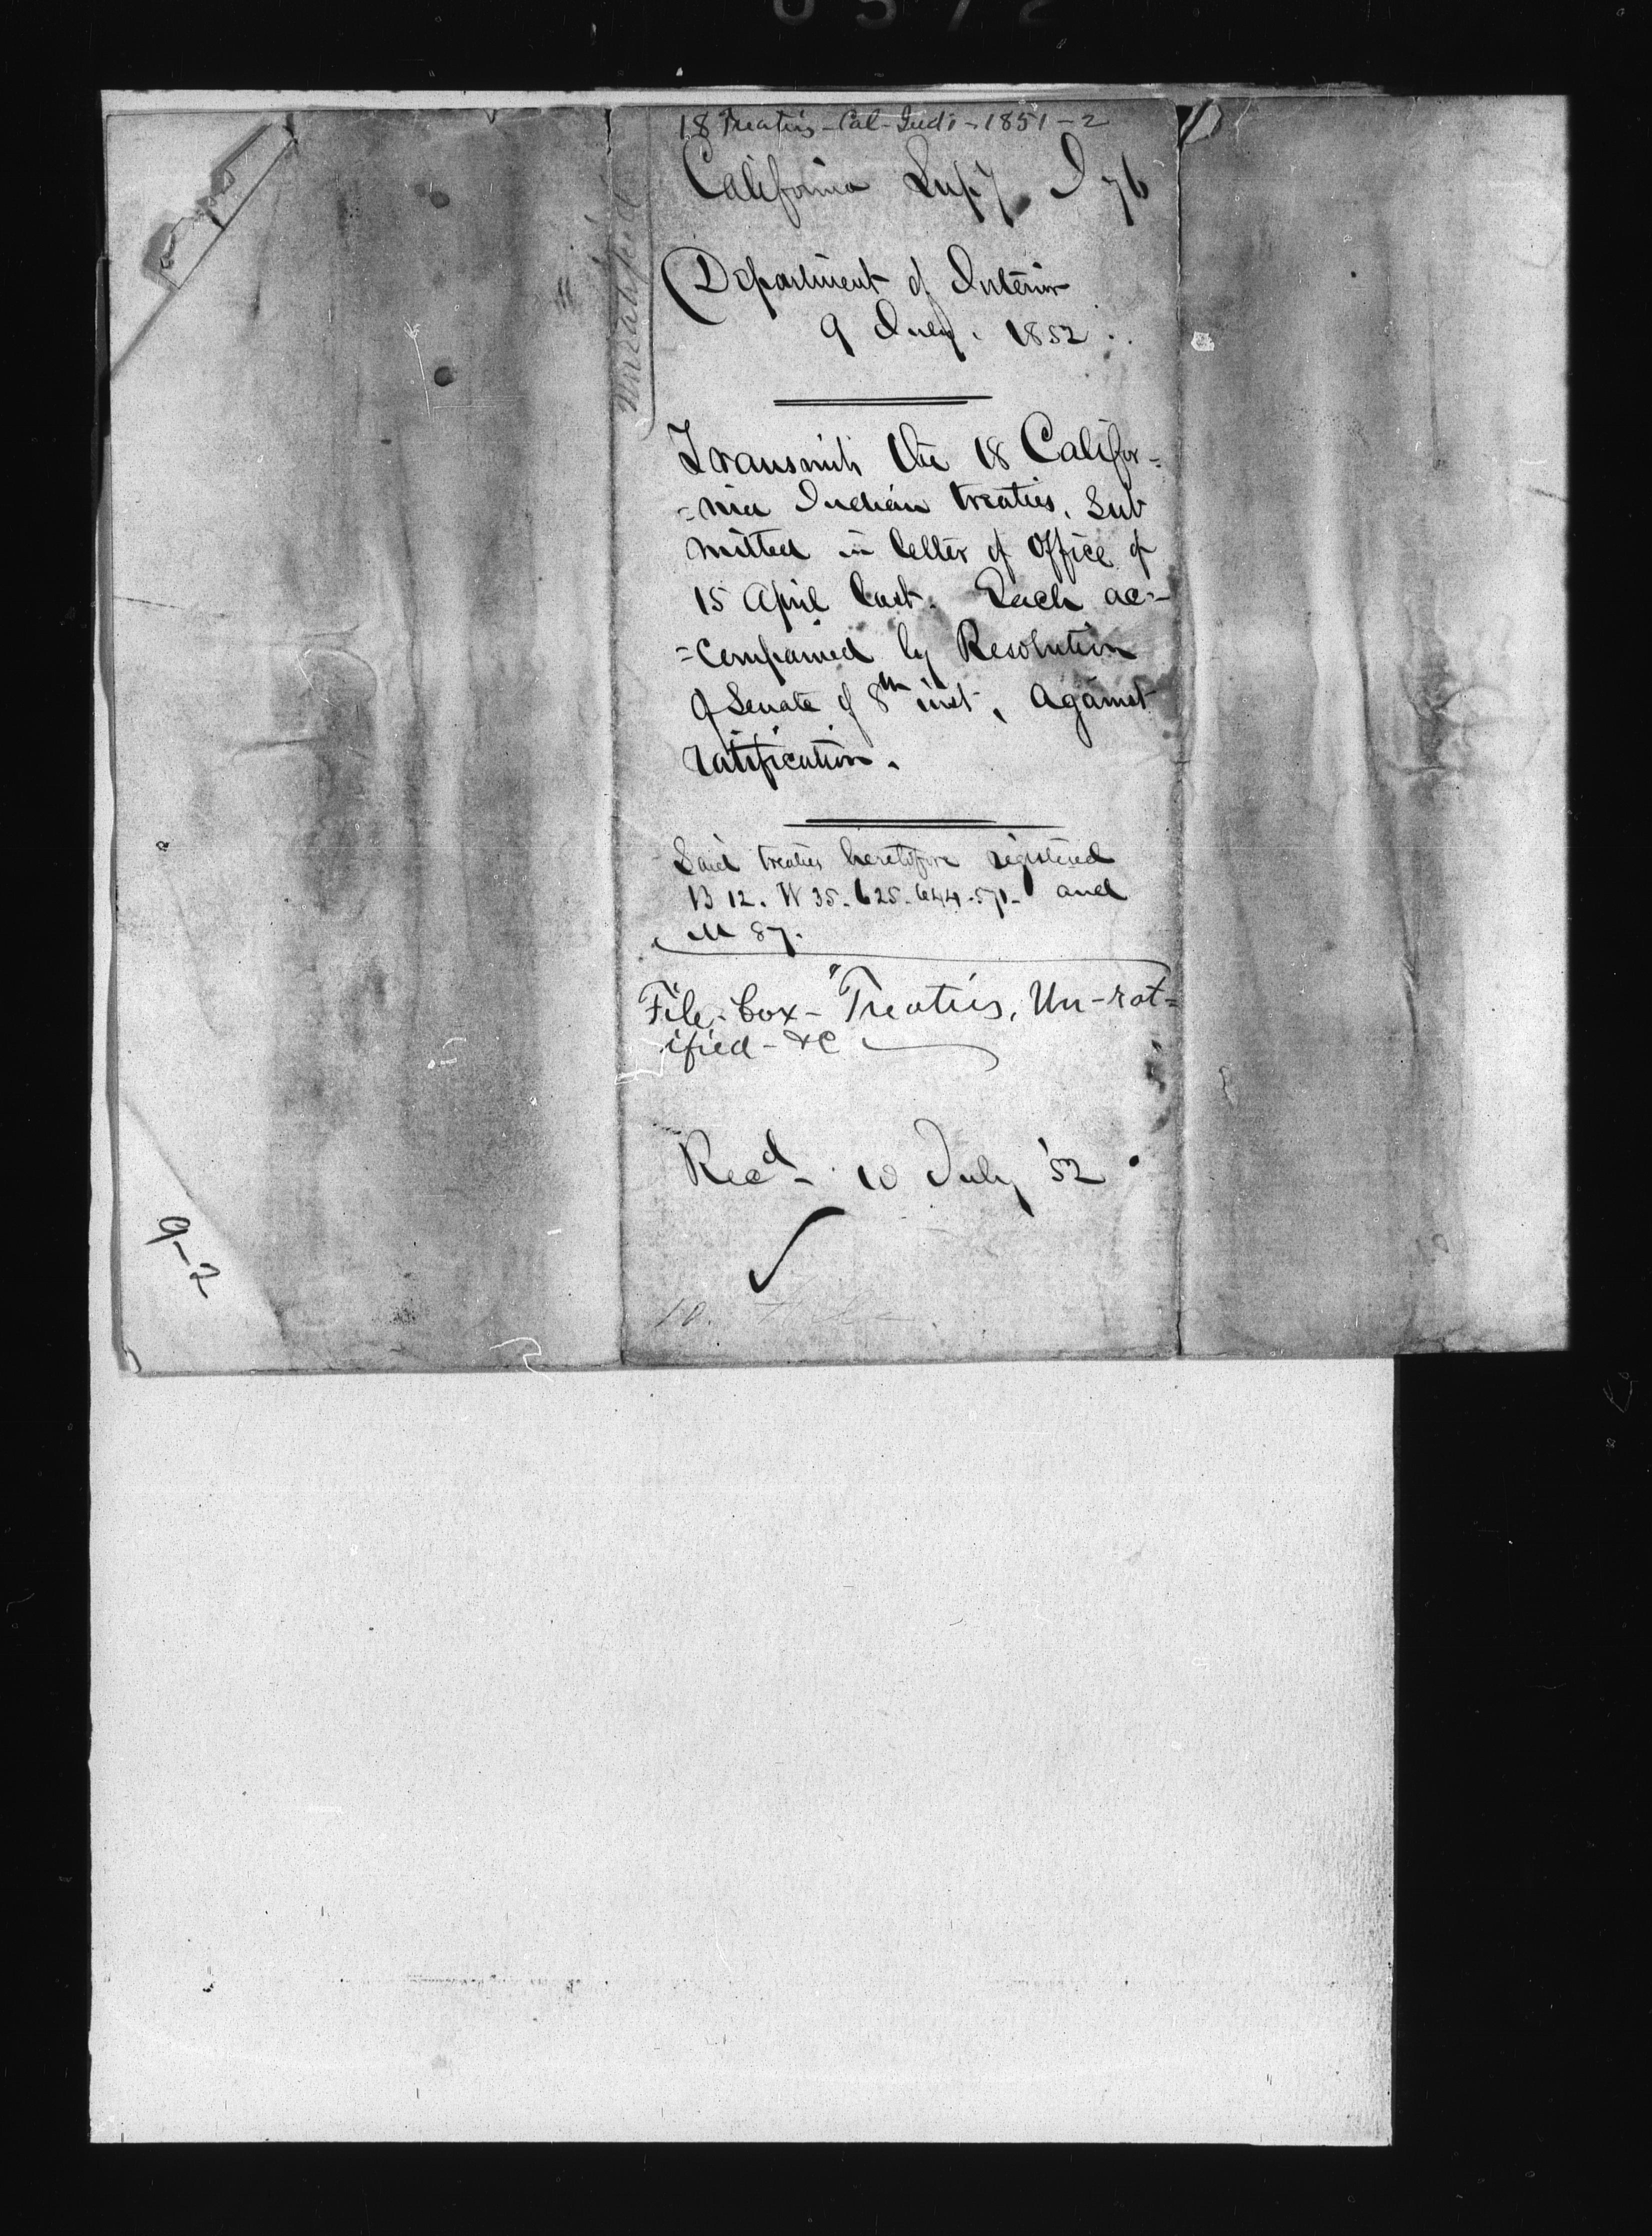 18 Treaties - Cal - Indi - 1851-2
California Supy I 76
Unratified
Department of Interior
9 July. 1852.
Transmits the 18 Califor=
=nia Indian treaties, Sub
mitted in letter of Office of
15 April last. Each ac=
=companied by Resolution
of Senate of 8th inst, against
ratification.
Said treaties heretofore registered
B 12. W 35. 625. 644. 571. and
M 87.
File-box-"Treaties, Un-rat=
ified-&c
Recd. 10 July '52
9-2